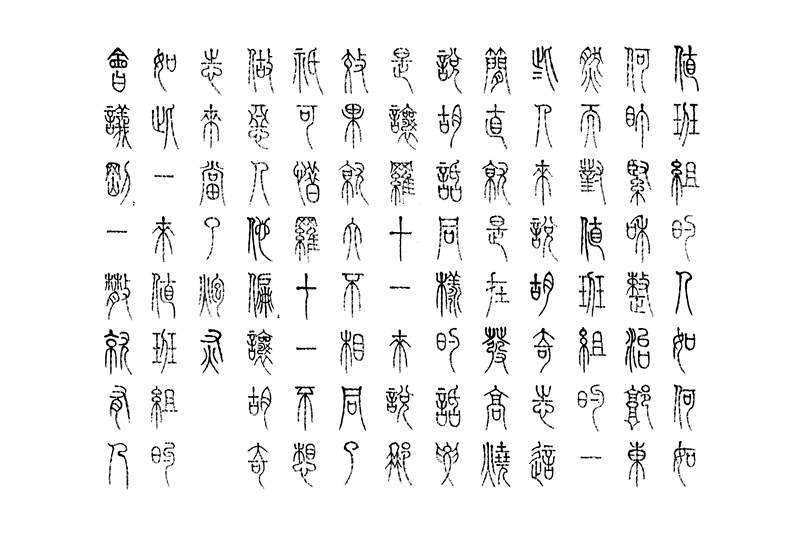 值班組的人如何如
何緊整治郭東
然而對值班組的一
些人來說胡奇志這
簡直就是在發高燒
說胡話同樣的話要
是讓羅十一來說那
效果就大不相同了
祇可惜羅十一不想
做惡人他偏讓胡奇
志來當了炮灰
如此一來值班組的
會議剛一散就有人